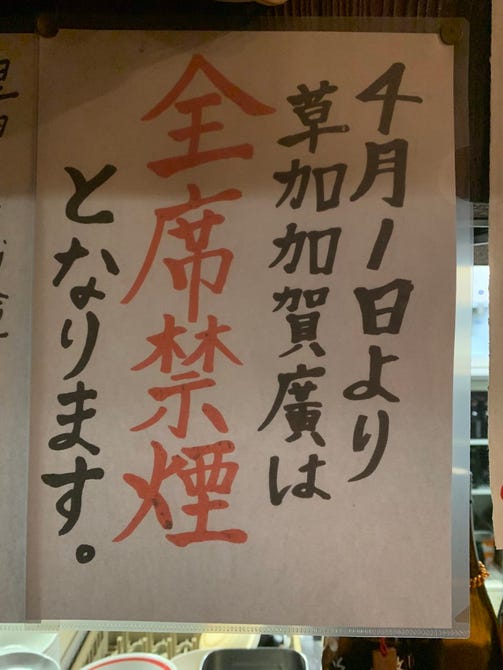 4月1日より
草加加賀廣は
全席禁煙
となります。